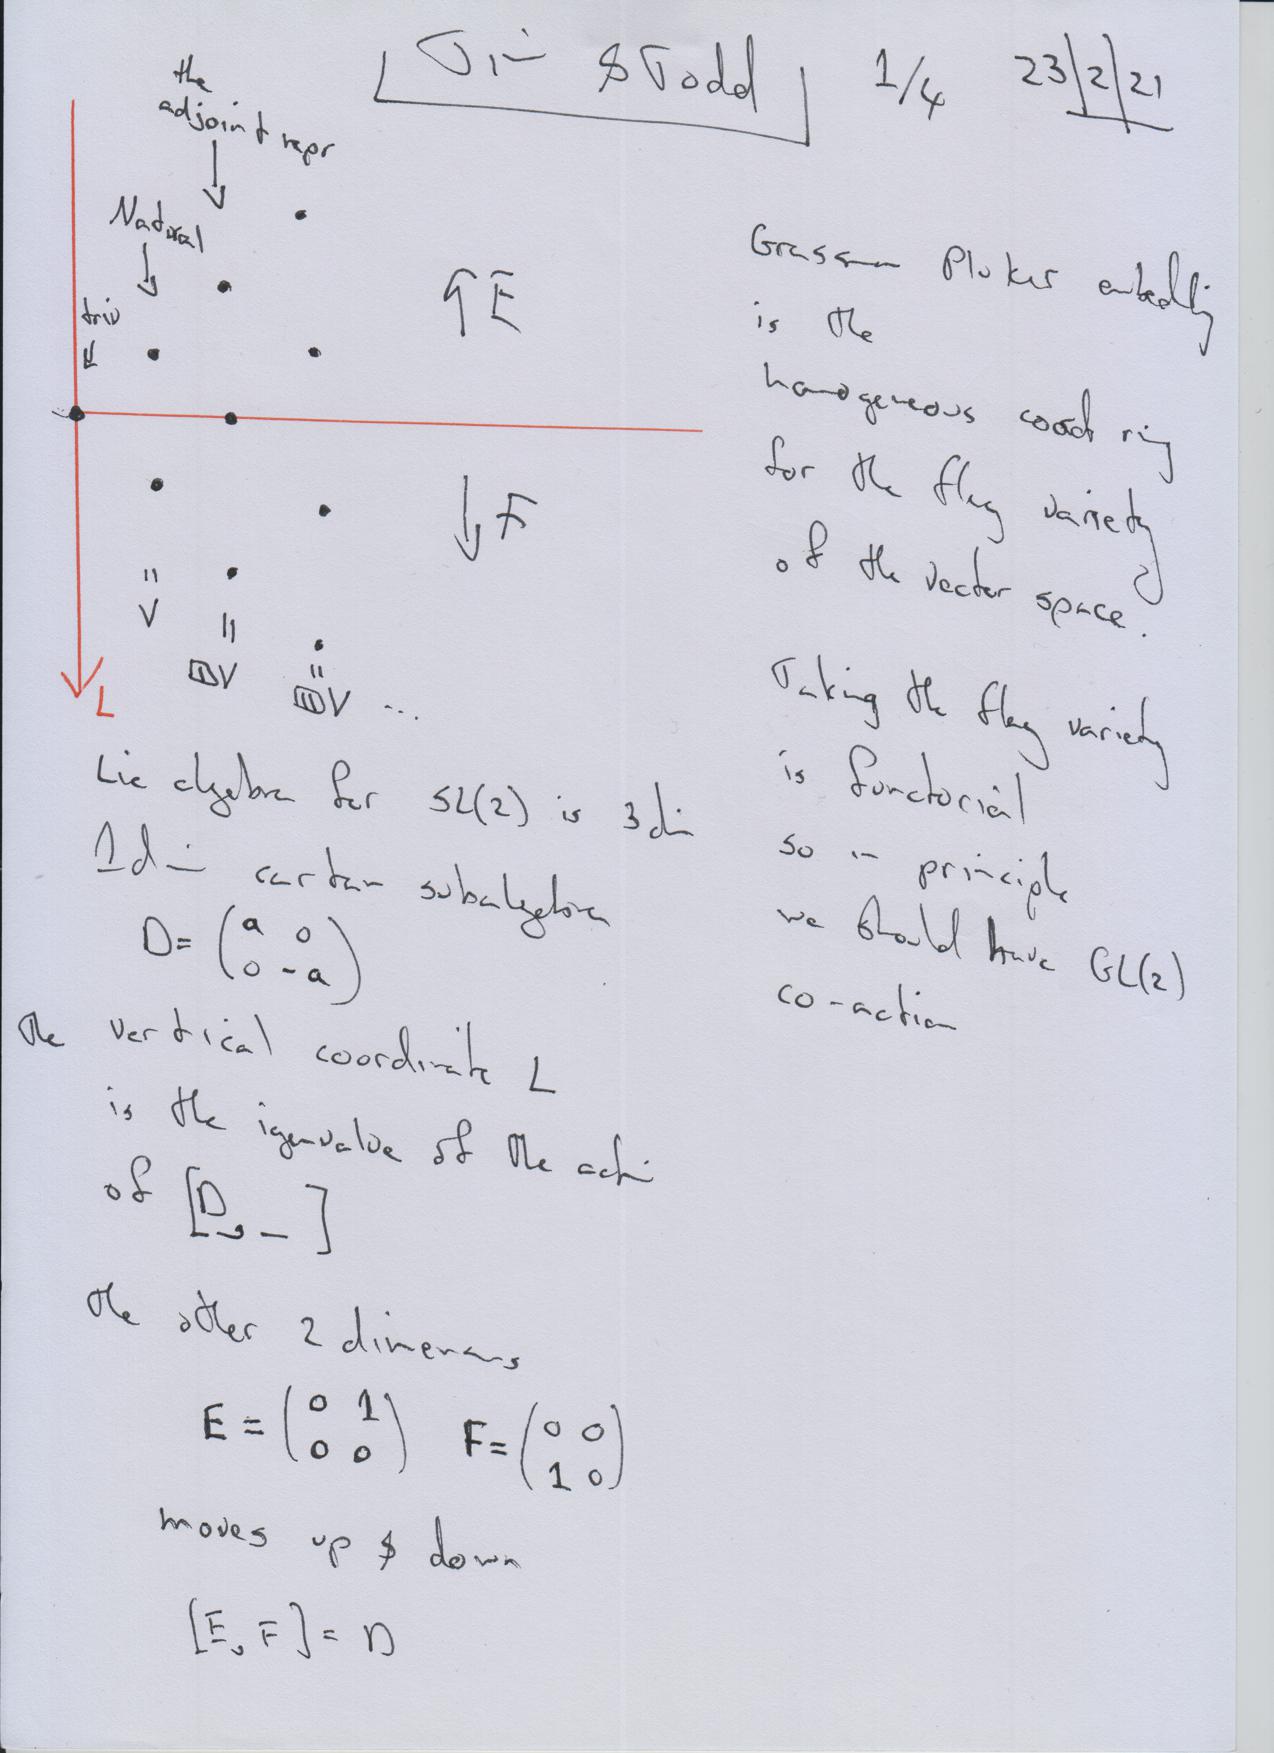 Tim & Todd 1/4 23/2/21
the
adjoint repr
Natural
triv
↑E
↓F
V
V
V ...
L
Lie algebra for SL(2) is 3 dim
1 dim cartan subalgebra
D = (a 0
0 -a)
the vertical coordinate L
is the igenvalue of the acti
of [D, _ ]
the other 2 dimensions
E = (0 1
0 0) F = (0 0
1 0)
moves up & down
[E, F] = D
Grassman Pluker embedding
is the
homogeneous coord ring
for the flag variety
of the vector space.
Taking the flag variety
is functorial
so in principle
we should have GL(2)
co-action